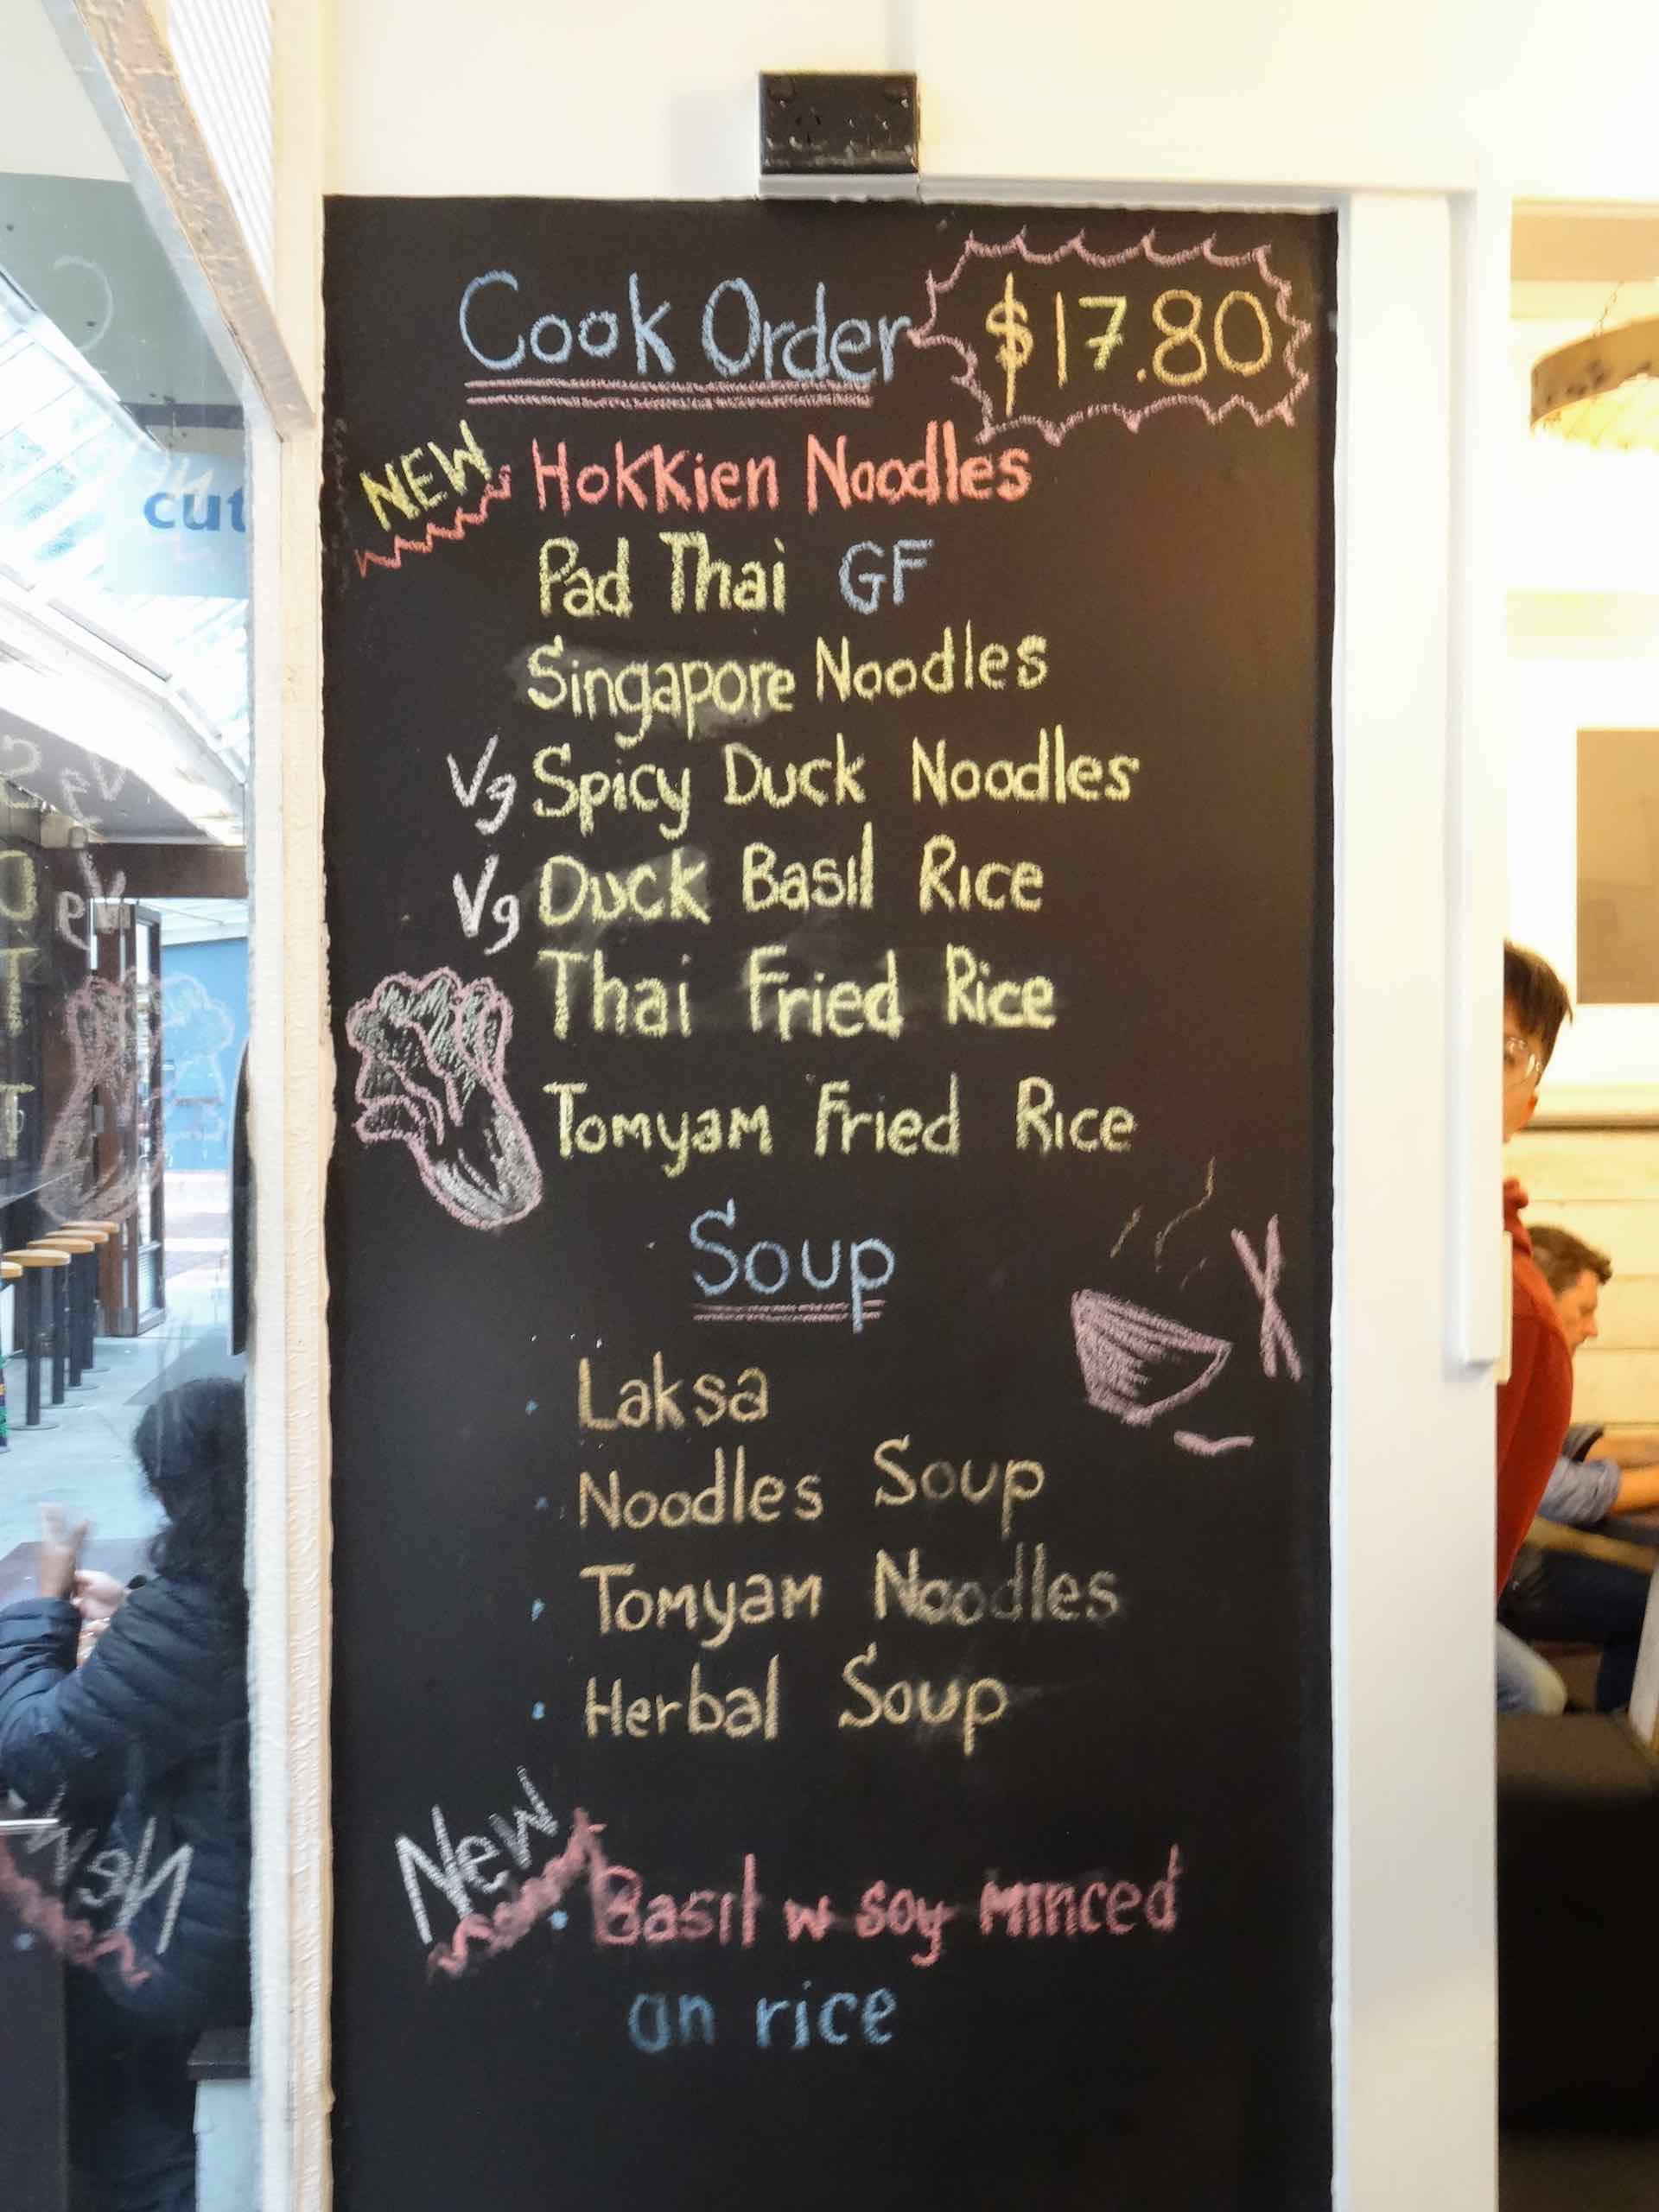 Cook Order $17.80
NEW Hokkien Noodles
Pad Thai GF
Singapore Noodles
Vg Spicy Duck Noodles
Vg Duck Basil Rice
Thai Fried Rice
Tomyam Fried Rice
Soup
· Laksa
· Noodles Soup
· Tomyam Noodles
· Herbal Soup
New · Basil w soy Minced
on rice
cut